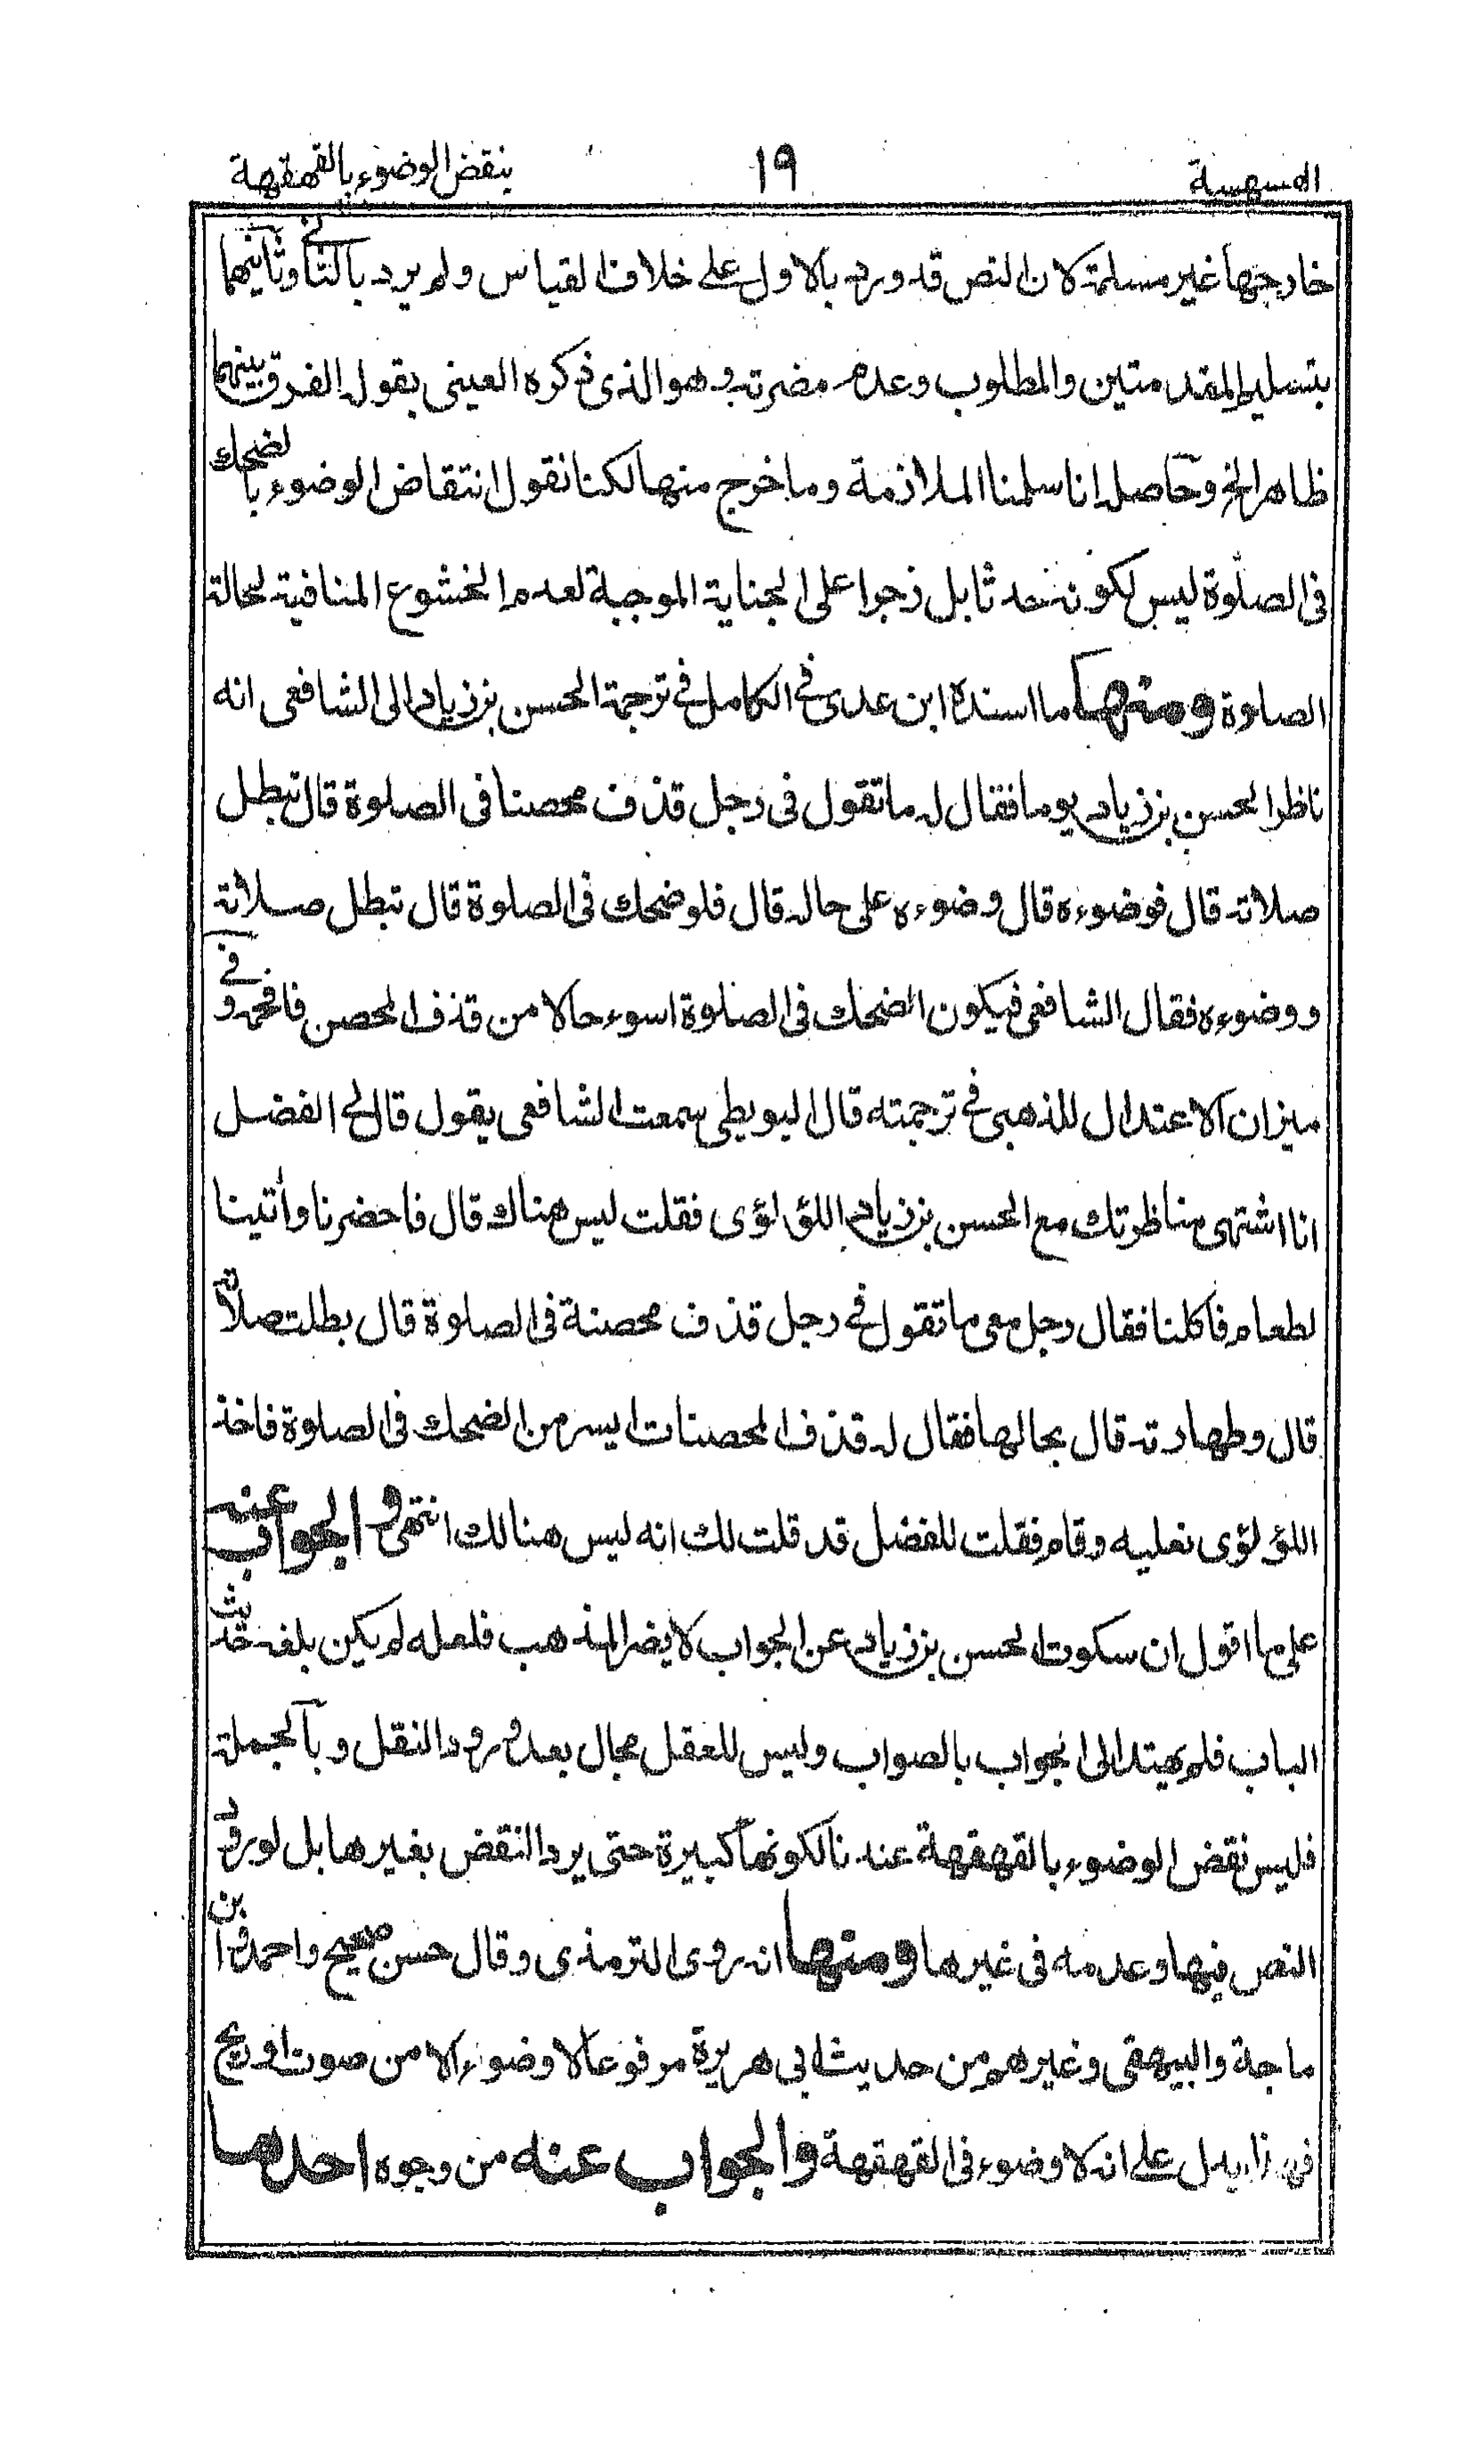 الهسهسة ١٩ بنقض الوضوء بالقهقهة
خارجها غير مسلمة لان النص قد ورد بالاول على خلاف القياس ولم يرد بالثاني وثانيهما
بتسليم المقدمتين والمطلوب وعدم مضرته وهو الذي ذكره العيني بقوله الفرق بينهما
ظاهر الخ وحاصله انا سلمنا الملازمة وما خرج منها لكنا نقول انتقاض الوضوء بالضحك
في الصلوة ليس لكونه حدثا بل زجرا على الجناية الموجبة لعدم الخشوع المنافية لحالة
الصلوة ومنها ما اسنده ابن عدى في الكامل في ترجمة الحسن بن زياد الى الشافعى انه
ناظر الحسن بن زياد يوما فقال له ما تقول فى رجل قذف محصنا فى الصلوة قال تبطل
صلاته قال فوضوءه قال وضوءه على حاله قال فلو ضحك فى الصلوة قال تبطل صلاته
ووضوءه فقال الشافعى فيكون الضحك فى الصلوة اسوء حالا من قذف المحصن فافحم وفي
ميزان الاعتدال للذهبى في ترجمته قال البويطى سمعت الشافعى يقول قال لي الفضل
انا اشتهى مناظرتك مع الحسن بن زياد اللؤلؤى فقلت ليس هناك قال فاحضرنا وأتينا
لطعام فاكلنا فقال رجل معى ما تقول في رجل قذف محصنة فى الصلوة قال بطلت صلاته
قال وطهارته قال بحالها فقال له قذف المحصنات ايسر من الضحك فى الصلوة فاخذ
اللؤلؤى نعليه وقام فقلت للفضل قد قلت لك انه ليس هنالك انتهى والجواب عنه
على ما اقول ان سكوت الحسن بن زياد عن الجواب لا يضر المذهب فلعله لم يكن بلغه حديث
الباب فلم يهتد الى الجواب بالصواب وليس للعقل مجال بعد ورود النقل وبالجملة
فليس نقض الوضوء بالقهقهة عندنا لكونها كبيرة حتى يرد النقض بغيرها بل لورود
النص فيها وعدمه فى غيرها ومنها انه روى الترمذى وقال حسن صحيح واحمد وابن
ماجة والبيهقى وغيرهم من حديث ابى هريرة مرفوعا لا وضوء الا من صوت او ريح
فهذا يدل على انه لا وضوء فى القهقهة والجواب عنه من وجوه احدها